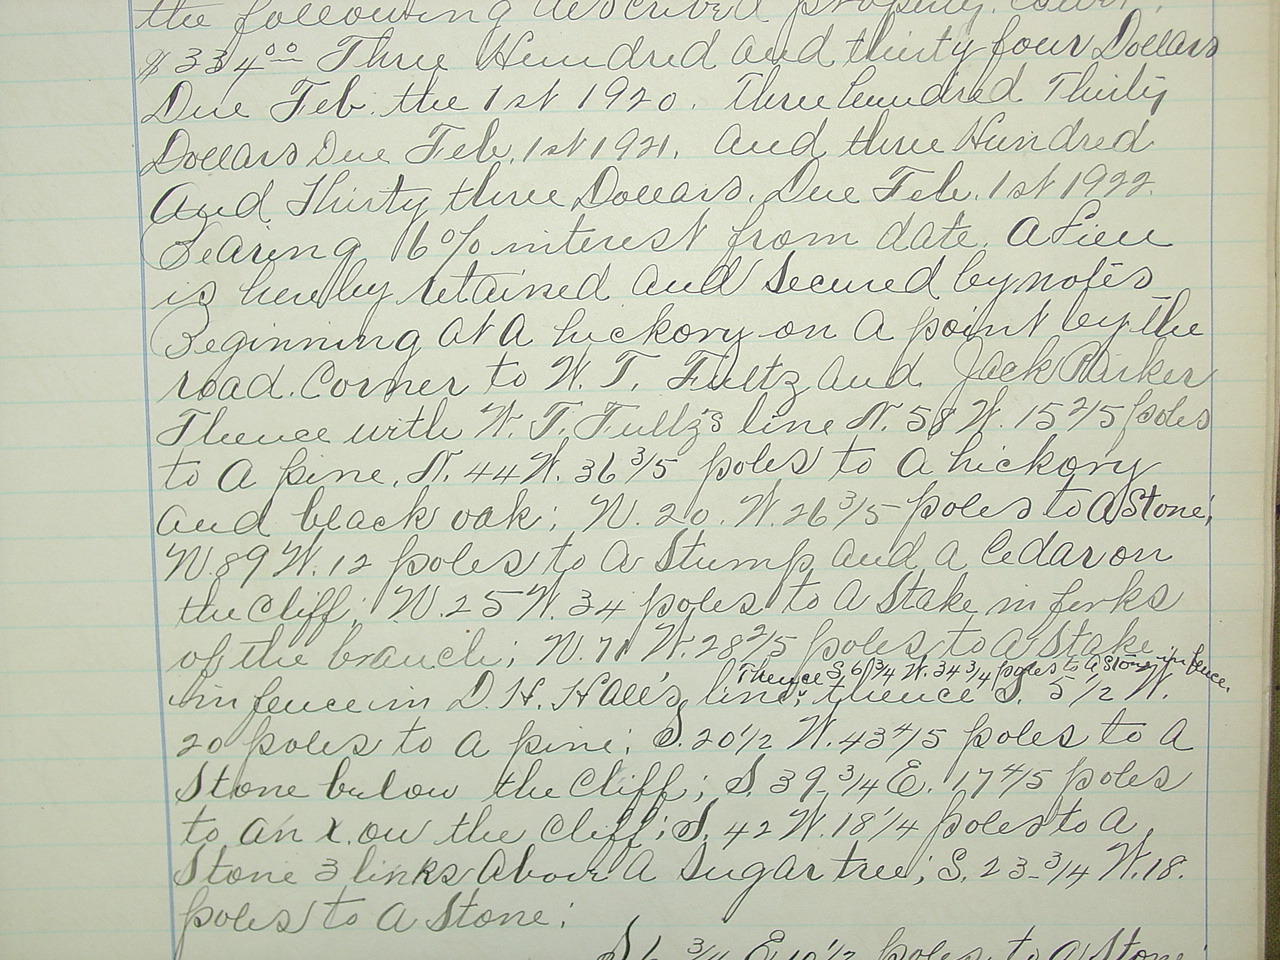 the following described property.
$334.00 Three Hundred and thirty four Dollars
Due Feb. the 1st 1920. Three hundred Thirty
Dollars Due Feb. 1st 1921. and three Hundred
And Thirty three Dollars. Due Feb. 1st 1922.
Bearing 6% interest from date. A Lien
is hereby retained and secured by notes
Beginning at a hickory on a point by the
road. Corner to W. T. Fultz and Jack Parker
Thence with W. T. Fultz's line N. 58 W. 15 2/5 poles
to a pine, N. 44 W. 36 3/5 poles to a hickory
and black oak; N. 20. W. 26 3/5 poles to a Stone;
N. 89 W. 12 poles to a Stump and a Cedar on
the Cliff; N. 25 W. 34 poles to a Stake in forks
of the branch; N. 71 W. 28 2/5 poles, to a Stake
Thence S. 6 3/4 W. 34 3/4 poles to a Stone in fence.
in fence in D. H. Hall's line; thence S. 5 1/2 W.
20 poles to a pine; S. 20 1/2 W. 43 4/5 poles to a
Stone below the Cliff; S. 39 3/4 E. 17 4/5 poles
to an X. on the Cliff; S. 42 W. 18 1/4 poles to a
Stone 3 links above a Sugar tree; S. 23-3/4 W. 18.
poles to a Stone;
poles, to a Stone;